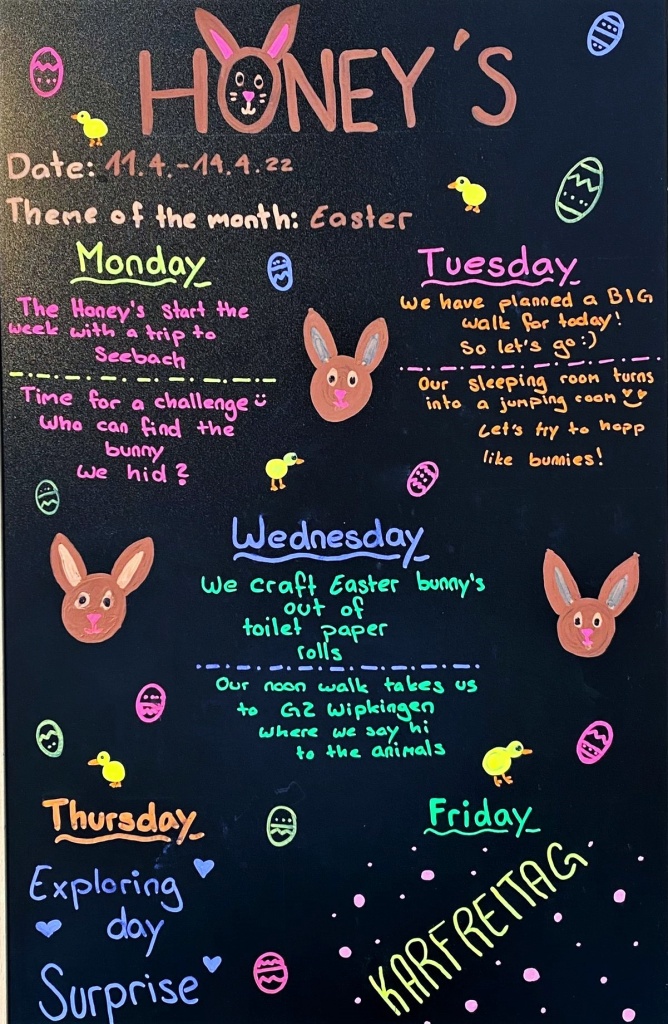 HONEY'S
Date: 11.4.-14.4.22
Theme of the month: Easter
Monday
The Honey's start the
week with a trip to
Seebach
Time for a challenge
Who can find the
bunny
we hid?
Tuesday
We have planned a BIG
walk for today!
So let's go :)
Our sleeping room turns
into a jumping room
Let's try to hopp
like bunnies!
Wednesday
We craft Easter bunny's
out of
toilet paper
rolls
Our noon walk takes us
to GZ Wipkingen
where we say hi
to the animals
Thursday
Exploring
day
Surprise
Friday
KARFREITAG